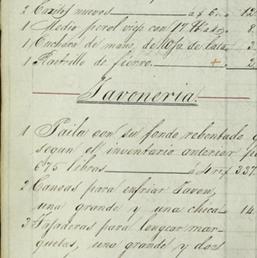 2 Cazos nuevos á 6 12
1 Medio perol viejo con 17
1 Cuchara de mano, de Hoja de lata 3
1 Rastrillo de fierro
Javoneria.
1 Paila con su fondo rebentado
segun el inventario anterior
675 libras á 4 337
2 Canoas para enfriar Javon,
una grande y una chica 14
3 Tapaderas para
quetas, una grande y dos